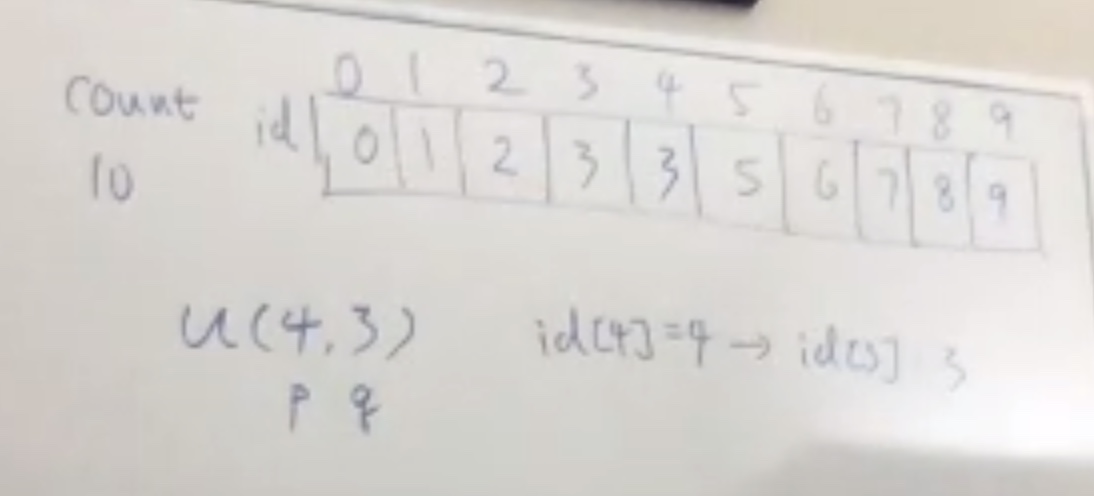 count
10
0 1 2 3 4 5 6 7 8 9
id 0 1 2 3 3 5 6 7 8 9
u(4,3)
p q
id[4]=4 → id[3] 3